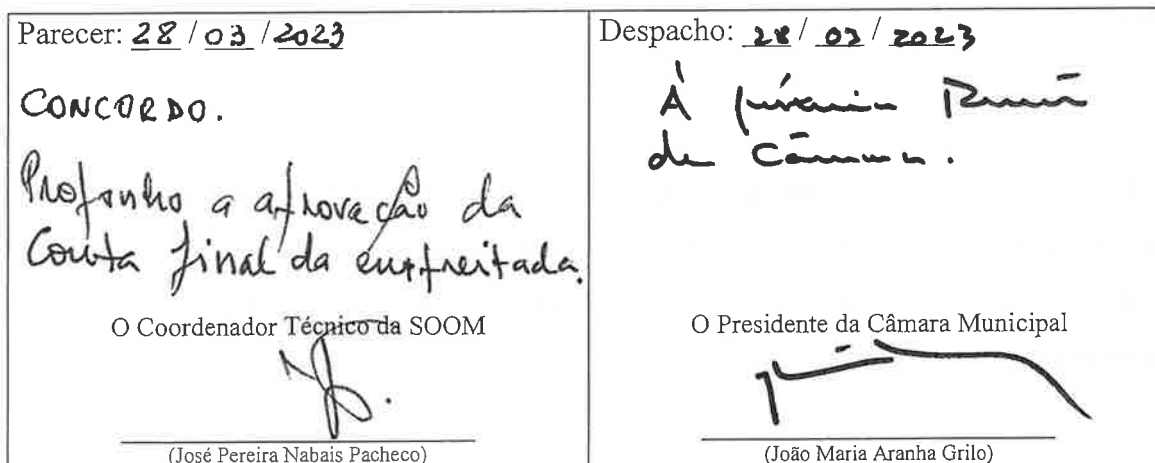 Parecer: 28 / 03 / 2023
CONCORDO.
Proponho a aprovação da
Conta final da empreitada.
O Coordenador Técnico da SOOM
(José Pereira Nabais Pacheco)
Despacho: 28 / 03 / 2023
À próxima Reunião
de Câmara.
O Presidente da Câmara Municipal
(João Maria Aranha Grilo)